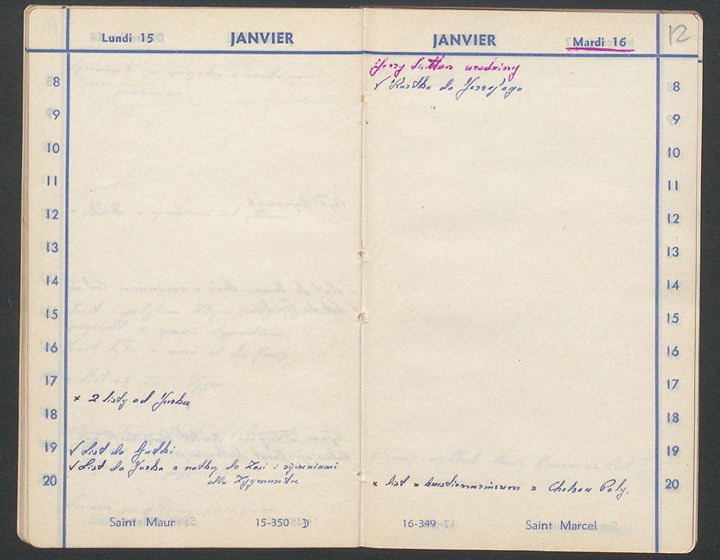 Lundi 15 JANVIER
8
9
10
11
12
13
14
15
16
17
x 2 listy od Jurka
18
19
√ List do Gutki
√ List do Jurka z notką do Zosi i życzeniami
20
dla Zygmunta
Saint Maur 15-350 D
JANVIER Mardi 16
12
Jerzy urodziny
√ Kartka do Jerzego
8
9
10
11
12
13
14
15
16
17
18
19
x list z kwestionariuszem z Chelsea Poly. 20
16-349 Saint Marcel